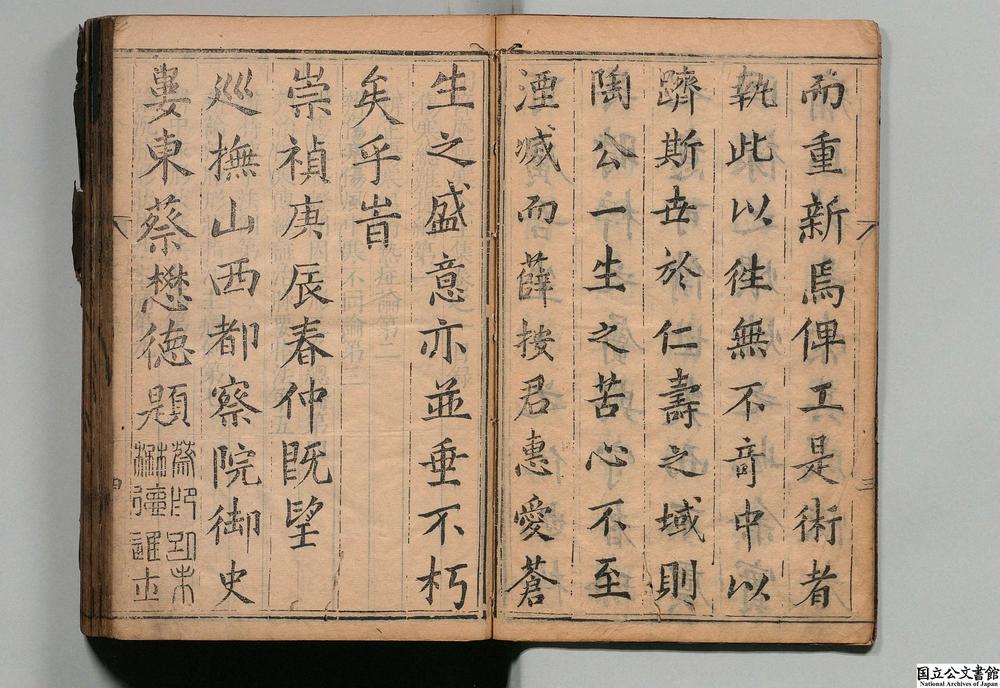 而重新焉俾工是術者
執此以徃無不竒中以
躋斯世於仁壽之域則
陶公一生之苦心不至
湮滅而薛按君惠愛蒼
三
生之盛意亦並垂不朽
矣乎旹
崇禎庚辰春仲既望
巡撫山西都察院御史
婁東蔡懋徳題
四
国立公文書館
National Archives of Japan